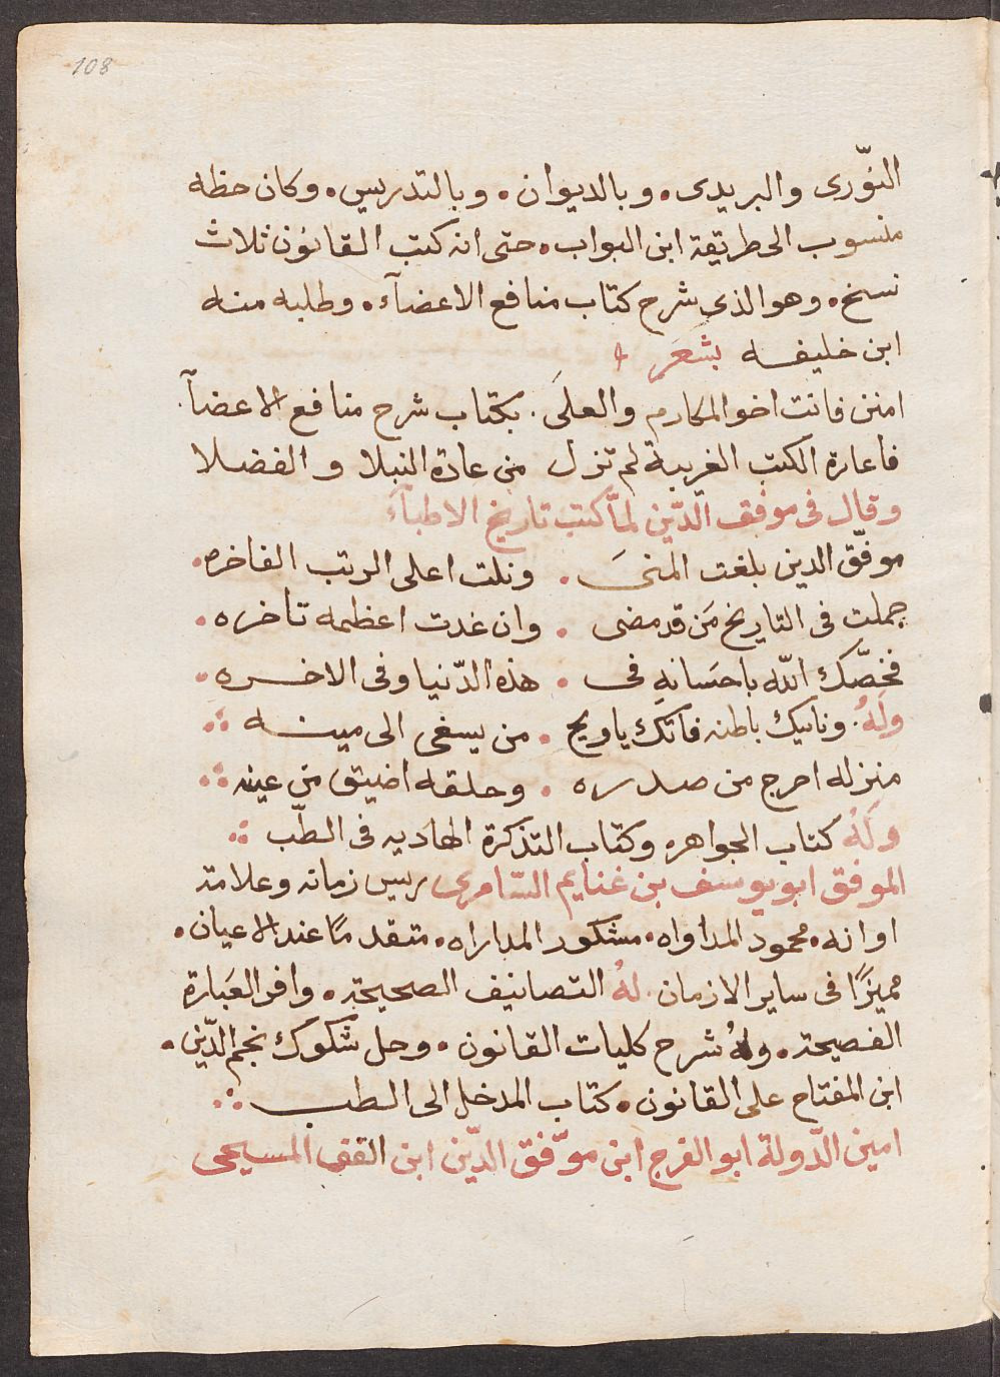 108
النّورى والبريدى. وبالديوان. وبالتدريس. وكان حظه
منسوب الى طريقة ابن البواب. حتى انه كتب القانون ثلاث
نسخ. وهو الذى شرح كتاب منافع الاعضآء. وطلبه منه
ابن خليفه بشعر
امنن فانت اخو المكارم والعلَى. بكتاب شرح منافع الاعضآ.
فاعارة الكتب الغريبة لم تزل من عادة النبلا و الفضلا
وقال فى موفق الدّين لمّا كتب تاريخ الاطبآء
موفّق الدين بلغت المنىَ. ونلت اعلى الرتب الفاخره.
جملت فى التاريخ مَن قد مضى. وان غدت اعظمه ناخره.
فخصّك الله باحسَانهِ فى. هذه الدّنيا وفى الاخره.
ولَهُ. وناسك باطنه فاتك ياويح. من يسغى الى مينه
منزله احرج من صدره. وحلقه اضيق من عينه
ولَهُ كتاب الجواهر. وكتاب التذكرة الهاديه فى الطّب
الموفق ابو يوسف بن غنايم السّامرى رييس زمانه وعلامة
اوانه. محمود المداواه. مشكور المداراه. متقدمًا عند الاعيان.
مميزًا فى ساير الازمان. لهُ التصانيف الصحيحة. وافر العَبارة
الفصيحة. ولهُ شرح كليات القانون. وحل شكوك نجم الدّين.
ابن المفتاح على القانون. كتاب المدخل الى الطب
امين الدّولة ابو الفرج ابن موّفق الدّين ابن القف المسيحى